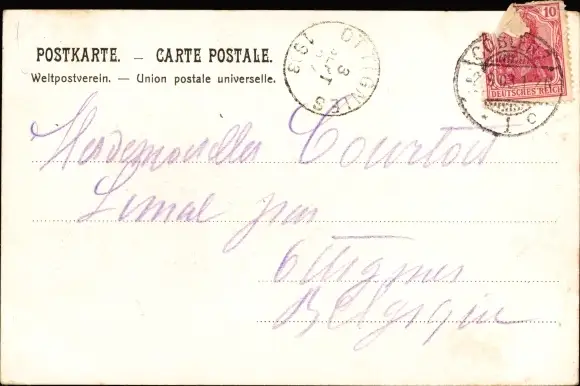 POSTKARTE. — CARTE POSTALE.
Weltpostverein. — Union postale universelle.
OTTIGNIES
3
SEPT
10
COBLENZ
DEUTSCHES REICH
* 1 c
Mesdemoiselles Courtois
Limal par
Ottignies
Belgique